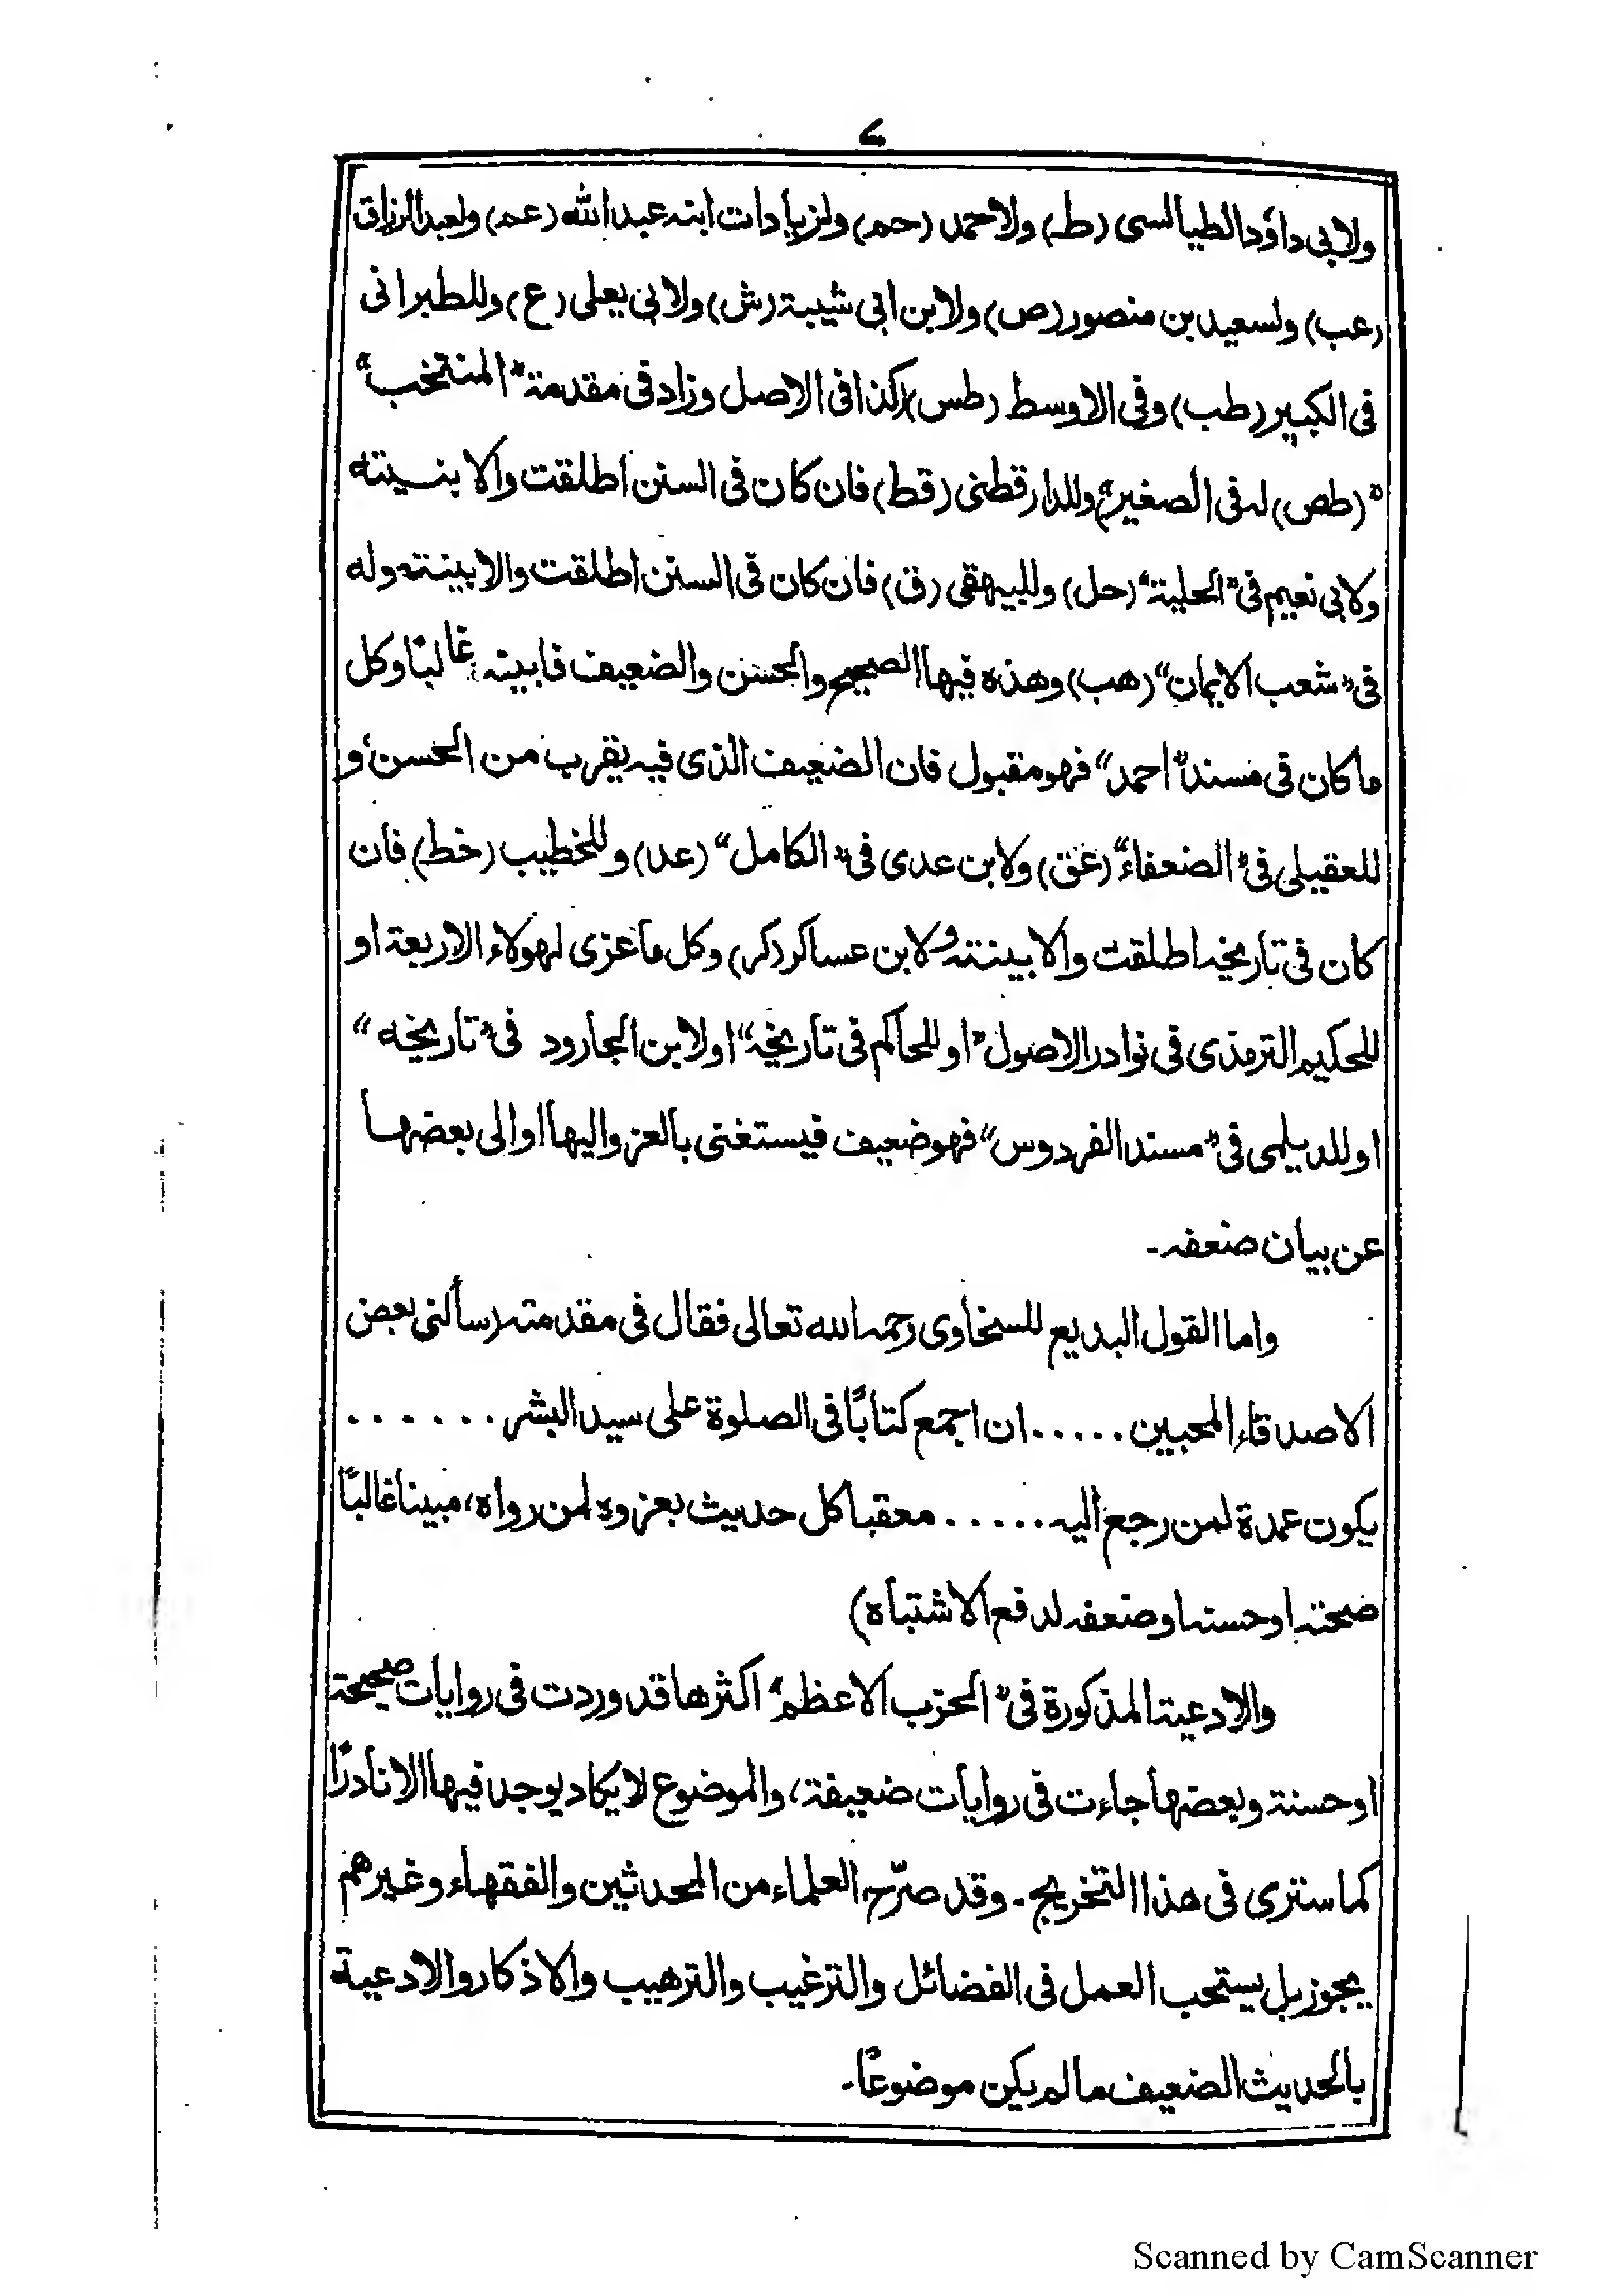 ۷
ولابی داؤد الطیالسی (ط) ولاحمد (حم) ولزیادات ابنہ عبد الله (عم) ولعبد الرزاق
(عب) ولسعید بن منصور (ص) ولابن ابی شیبة (ش) ولابی یعلی (ع) وللطبرانی
فی الکبیر (طب) وفی الاوسط (طس) (کذا فی الاصل وزاد فی مقدمة "المنتخب"
"(طص) له فی الصغیر") وللدارقطنی (قط) فان کان فی السنن اطلقت والا بنیته
ولابی نعیم فی "الحلیة" (حل) وللبیهقی (ق) فان کان فی السنن اطلقت والا بینته وله
فی "شعب الایمان" (هب) وهذه فیها الصحیح والحسن والضعیف فابینہ غالبًا وکل
ما کان فی مسند "احمد" فهو مقبول فان الضعیف الذی فیہ یقرب من الحسن، و
للعقیلی فی "الضعفاء" (عق) ولابن عدی فی "الکامل" (عد) وللخطیب (خط) فان
کان فی تاریخہ اطلقت والا بینتہ ولابن عساکر (کر) وکل ما عزی لهولاء الاربعة او
للحکیم الترمذی فی نوادر الاصول" او للحاکم فی تاریخہ" او لابن الجارود فی "تاریخه"
او للدیلمی فی "مسند الفردوس" فهو ضعیف فیستغنی بالعزو الیها او الی بعضها
عن بیان ضعفہ۔
واما القول البدیع للسخاوی رحمہ الله تعالی فقال فی مقدمتہ (سألنی بعض
الاصدقاء المحبین ..... ان اجمع کتابًا فی الصلوة علی سید البشر ......
یکون عمدة لمن رجع الیہ ..... معقبا کل حدیث بعزوه لمن رواه، مبینا غالبًا
صحتہ او حسنہ او ضعفہ لدفع الاشتباه)
والادعیة المذکورة فی "الحزب الاعظم" اکثرها قد وردت فی روایات صحیحة
او حسنة وبعضها جاءت فی روایات ضعیفة، والموضوع لا یکاد یوجد فیها الا نادرًا
کما ستری فی هذا التخریج۔ وقد صرّح العلماء من المحدثین والفقهاء وغیرهم
یجوز بل یستحب العمل فی الفضائل والترغیب والترهیب والاذکار والادعیة
بالحدیث الضعیف ما لم یکن موضوعًا۔
Scanned by CamScanner